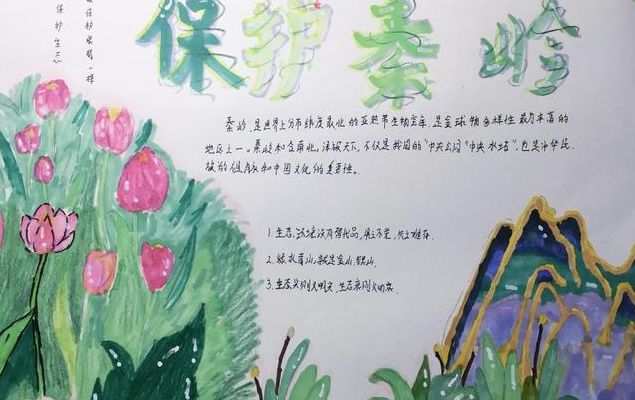 保护秦岭
保护生态
秦岭,是世界上分布纬度最北的亚热带生物宝库,是全球物多样性最为丰富的
地区之一。秦岭和合南北,泽被天下,不仅是我国的"中央公园"中央水塔",也是中华民
族的祖脉和中国文化的重要性。
1.生态环境没有替代品,用之不觉,失之难存.
2.绿水青山,就是金山,银山.
3.生态兴则文明兴,生态衰则文明衰.